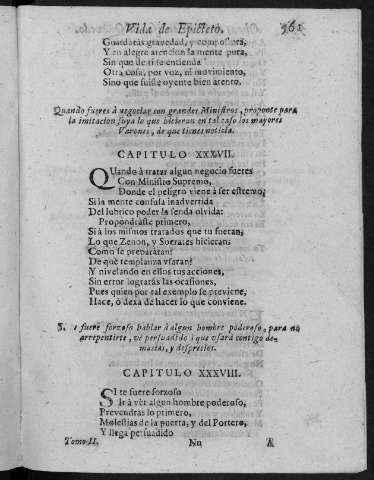 Vida de Epicteto. 561
Guardarás gravedad, y compostura,
Y en alegre atencion la mente pura,
Sin que de ti se entienda
Otra cosa, por voz, ni movimiento,
Sino que fuiste oyente bien atento.
Quando fueres à negociar con grandes Ministros, proponte para
la imitacion suya lo que hicieran en tal caso los mayores
Varones, de que tienes noticia.
CAPITULO XXXVII.
QUando à tratar algun negocio fueres
Con Ministro Supremo,
Donde el peligro viene à ser estremo;
Si la mente confusa inadvertida
Del lubrico poder la senda olvida:
Propondráste primero,
Si à los mismos tratados que tu fueran,
Lo que Zenon, y Socrates hicieran?
Como se prepararàn?
De què templanza vsaran?
Y nivelando en ellos tus acciones,
Sin error lograràs las ocasiones,
Pues quien por tal exemplo se previene,
Hace, ò dexa de hacer lo que conviene.
S. i fuere forzoso hablar à algun hombre poderoso, para no
arrepentirte, vè persuadido à que vsará contigo de-
masias, y desprecios.
CAPITULO XXXVIII.
SI te fuere forzoso
Ir à vèr algun hombre poderoso,
Prevendràs lo primero,
Molestias de la puerta, y del Portero,
Y llega persuadido
Tomo II. Nn A